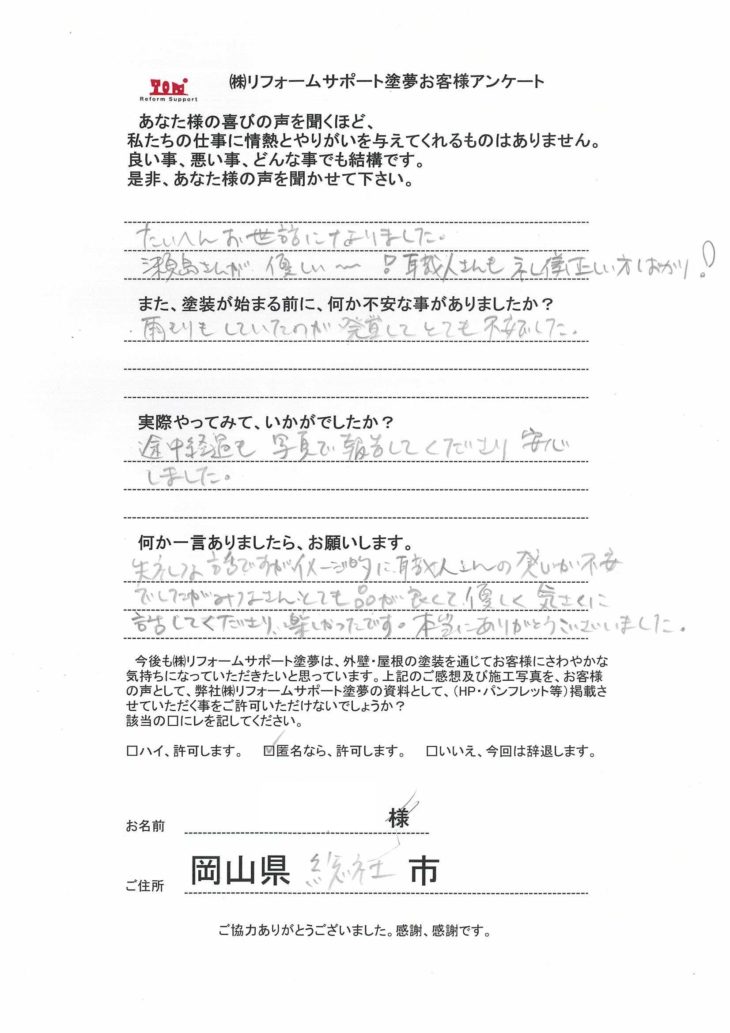 TOM
Reform Support
㈱リフォームサポート塗夢お客様アンケート
あなた様の喜びの声を聞くほど、
私たちの仕事に情熱とやりがいを与えてくれるものはありません。
良い事、悪い事、どんな事でも結構です。
是非、あなた様の声を聞かせて下さい。
たいへんお世話になりました。
瀬島さんが 優しい〜 職人さんも 礼儀正しい方ばかり!
また、塗装が始まる前に、何か不安な事がありましたか?
雨もりもしていたのが 発覚して とても 不安でした。
実際やってみて、いかがでしたか?
途中経過も 写真で報告してくださり 安心
しました。
何か一言ありましたら、お願いします。
失礼な話ですがイメージ的に職人さんの 不安
でしたがみなさんとても品が良くて優しく 気さくに
話してくださり、楽しかったです。本当にありがとうございました。
今後も㈱リフォームサポート塗夢は、外壁・屋根の塗装を通じてお客様にさわやかな
気持ちになっていただきたいと思っています。上記のご感想及び施工写真を、お客様
の声として、弊社㈱リフォームサポート塗夢の資料として、(HP・パンフレット等)掲載さ
せていただく事をご許可いただけないでしょうか?
該当の□にレを記してください。
□ハイ、許可します。 ☑匿名なら、許可します。 □いいえ、今回は辞退します。
お名前 様
ご住所 岡山県 総社 市
ご協力ありがとうございました。感謝、感謝です。